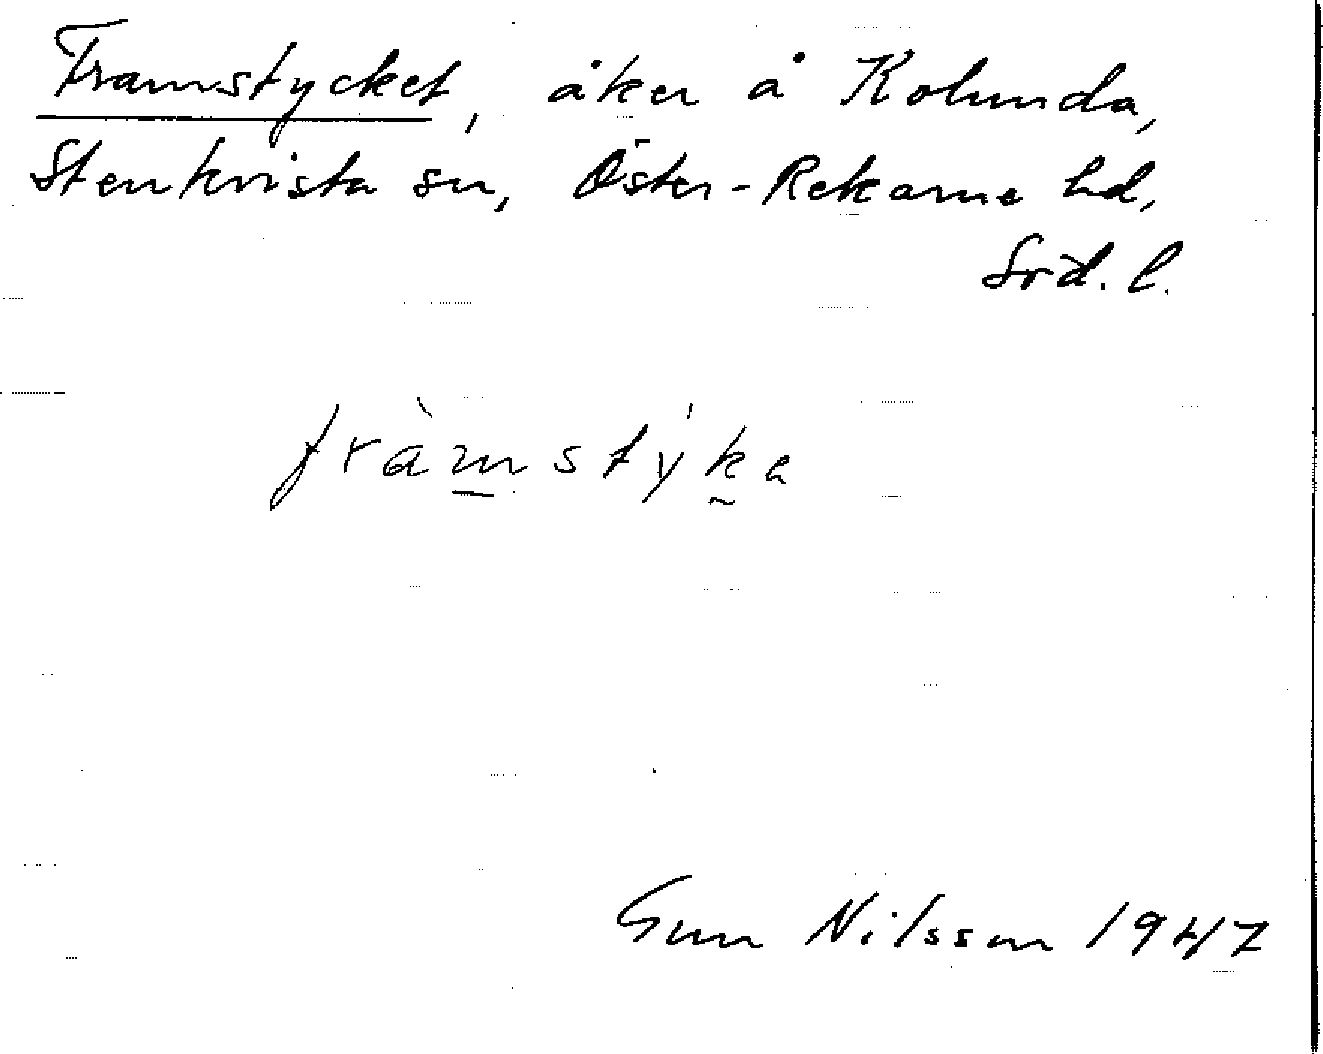 Framstycket, åker å Kolunda,
Stenkvista sn, Öster-Rekarne hd,
Srd. l.
fràmstýka
Gun Nilsson 1947